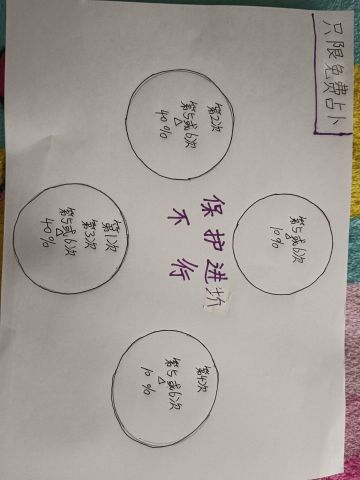 只限免费占卜
第5或6次
10%
第2次
第5或6次
40%
保护进坑
不行
第4次
第5或6次
10%
第1次
第3次
第5或6次
40%